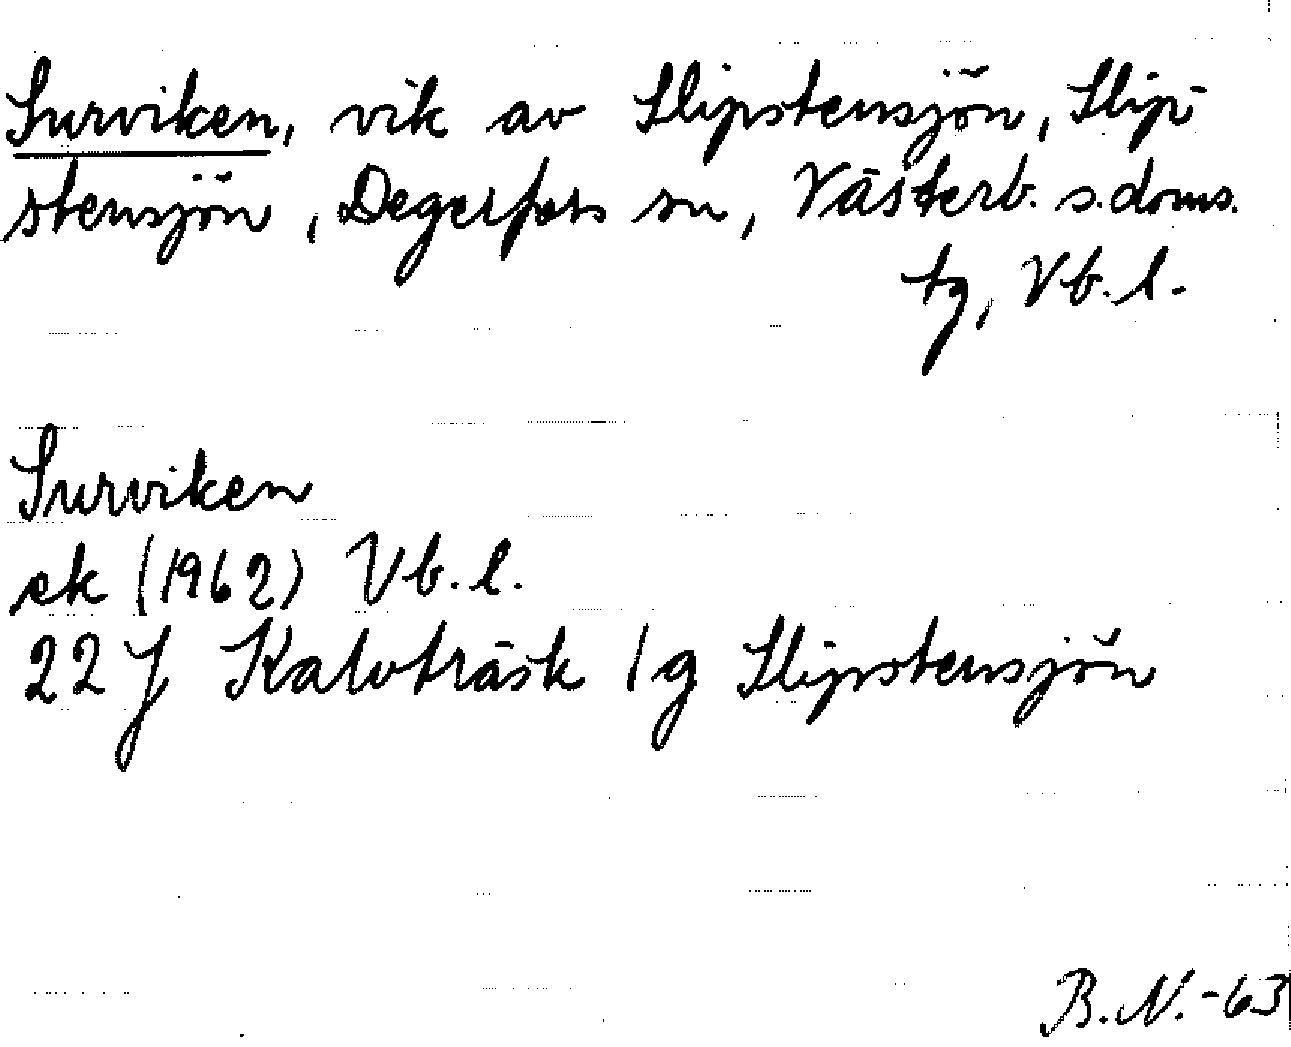 Surviken, vik av Slipstensjön, Slip-
stensjön, Degerfors sn, Västerb. s. doms.
tg, Vb. l.
Surviken
ek (1962) Vb. l.
22 J Kalvträsk 1 g Slipstensjön
B. N. -63